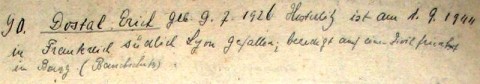 90. Dostal Erich geb. 9. 7. 1926 ist am 1. 9. 1944
in Frankreich südlich Lyon gefallen; beerdigt auf
in Bourg (